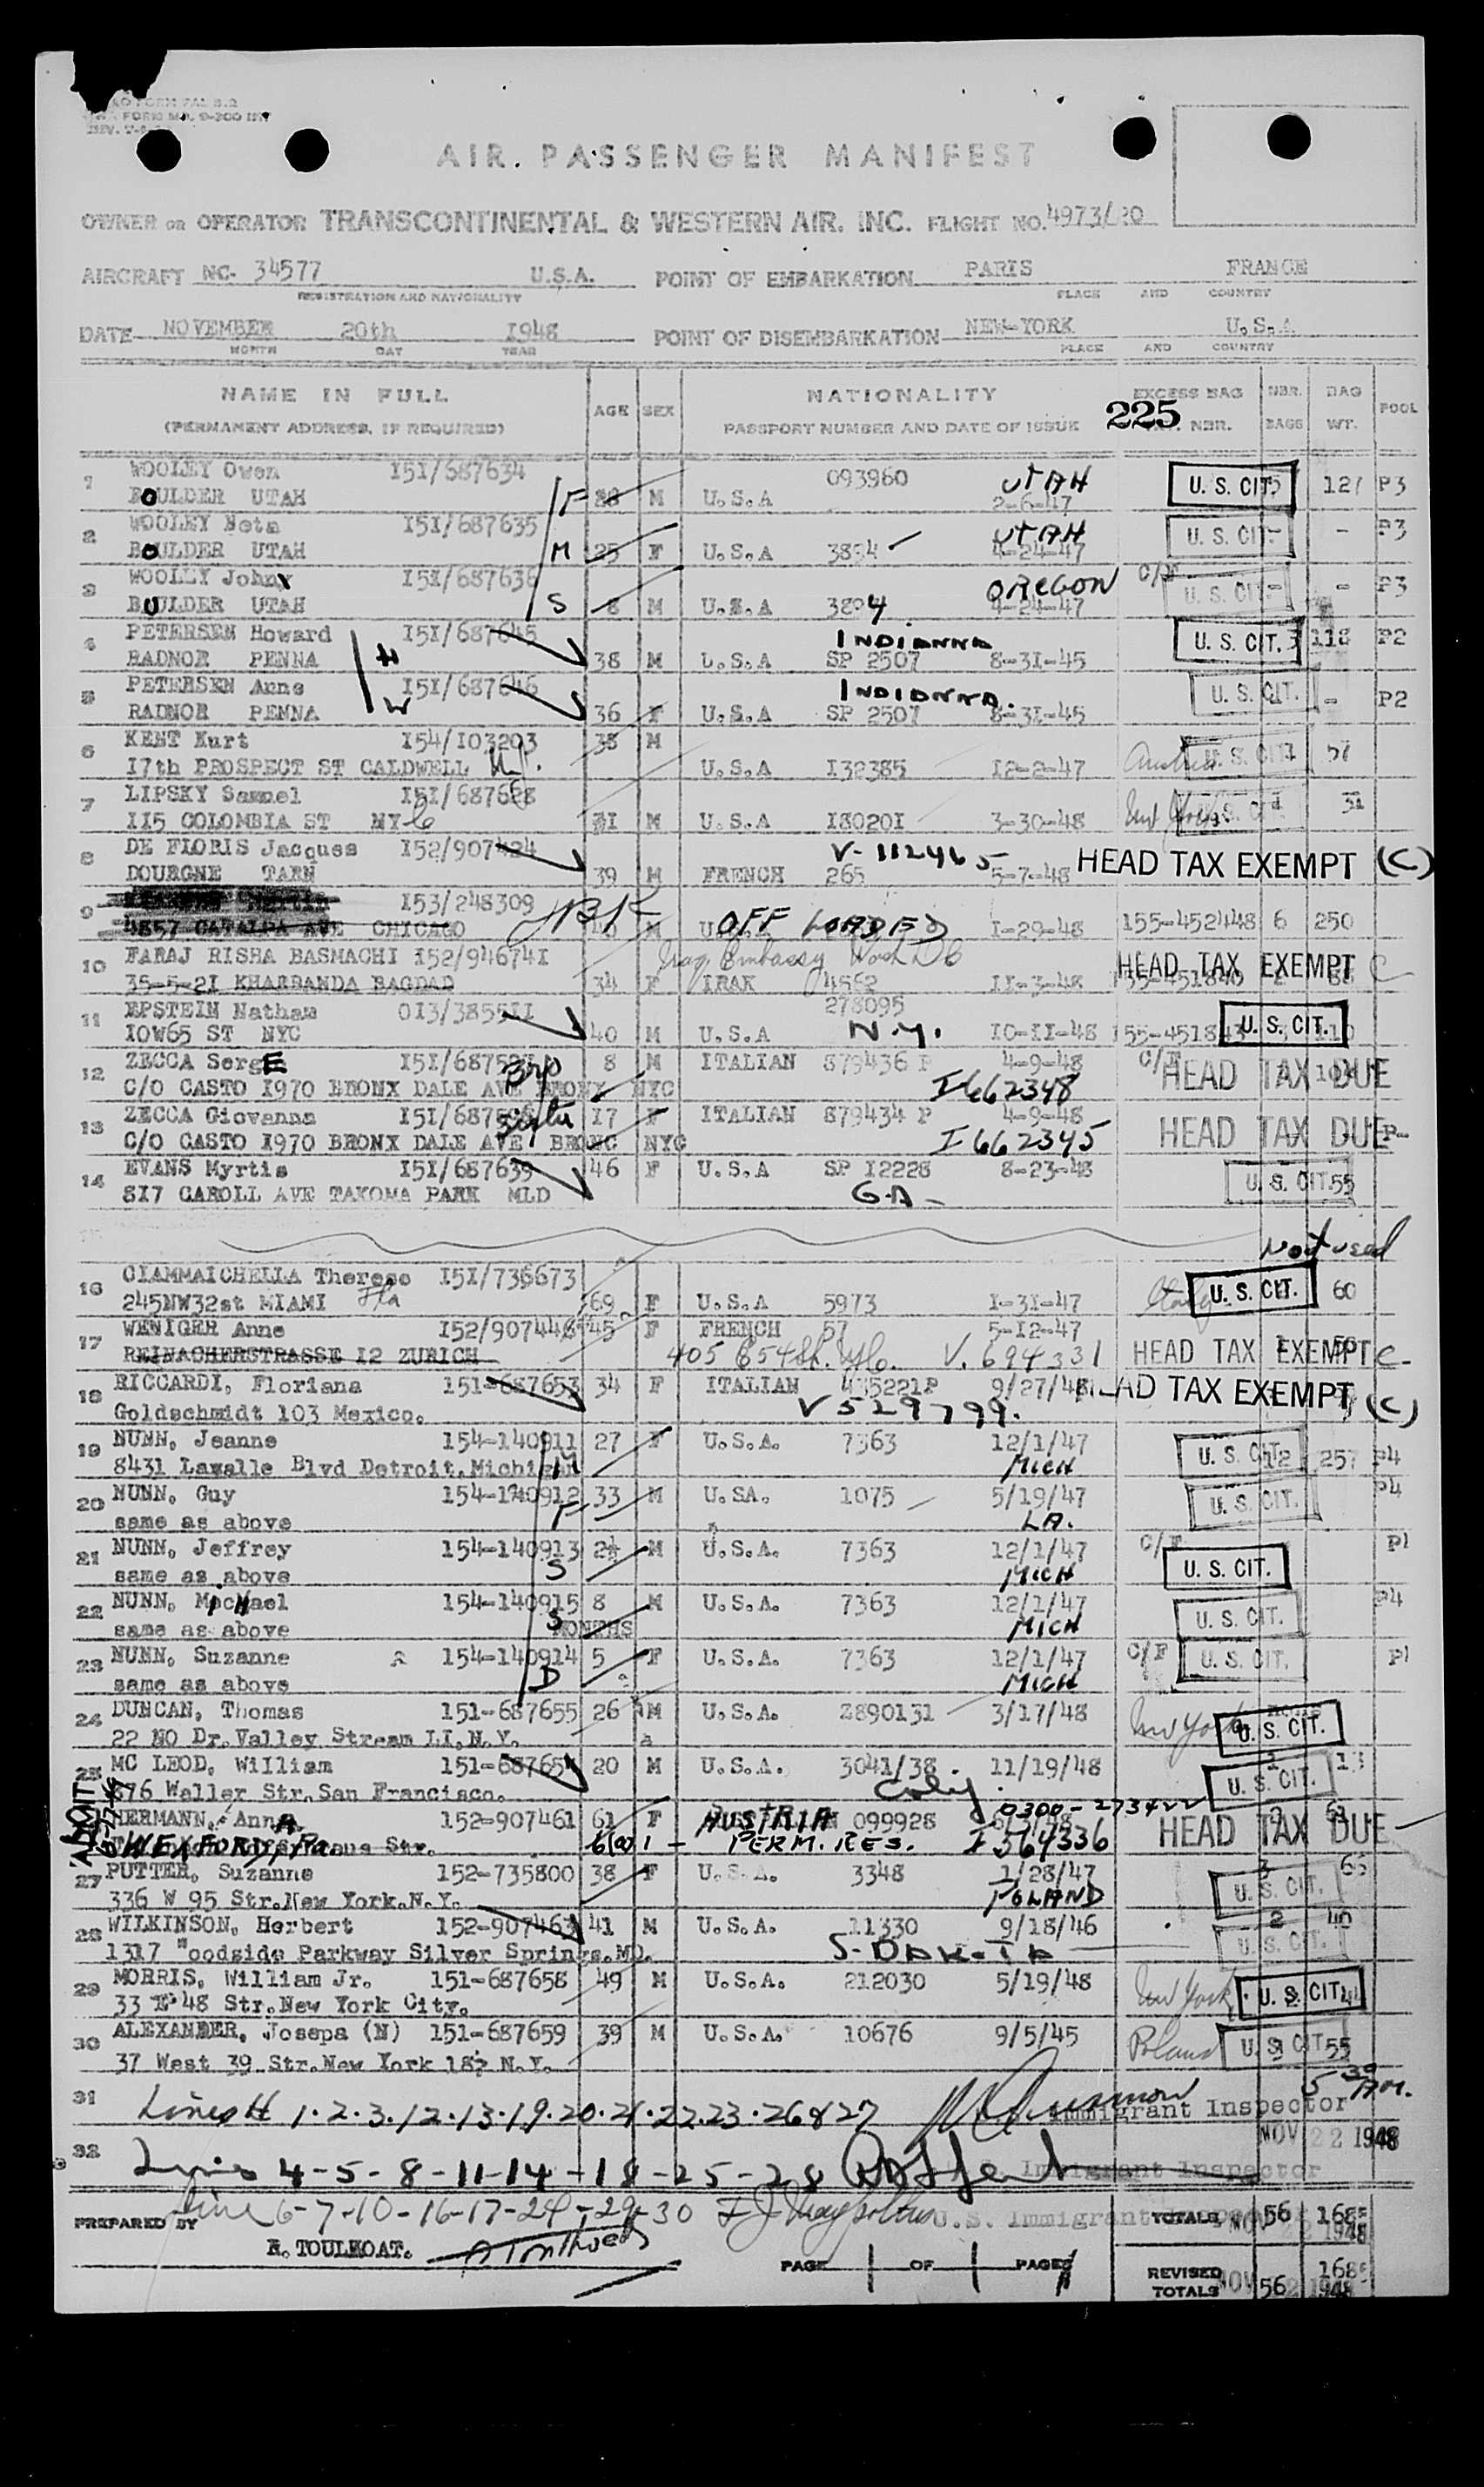 AIR PASSENGER MANIFEST
OWNER OR OPERATOR TRANSCONTINENTAL & WESTERN AIR. INC. FLIGHT NO. 4973/
AIRCRAFT NC- 34577 U.S.A. POINT OF EMBARKATION PARIS FRANCE
REGISTRATION AND NATIONALITY PLACE AND COUNTRY
DATE NOVEMBER 20th 1948 POINT OF DISEMBARKATION NEW-YORK U.S.A
MONTH DAY YEAR PLACE AND COUNTRY
NAME IN FULL AGE SEX NATIONALITY EXCESS BAG NBR. BAG POOL
(PERMANENT ADDRESS, IF REQUIRED) PASSPORT NUMBER AND DATE OF ISSUE 225 NBR. BAGS WT.
1 WOOLEY Owen I5I/687634 093960 UTAH U.S. CIT. P3
BOULDER UTAH F M U.S.A 2-6-47
2 WOOLEY Neta I5I/687635 UTAH U.S. CIT. - P3
BOULDER UTAH M 25 F U.S.A 3894 4-24-47
3 WOOLEY Johny I5I/687636 OREGON C/F U.S. CIT. - P3
BOULDER UTAH S 8 M U.S.A 3894 4-24-47
4 PETERSEN Howard I5I/687645 INDIANNA U.S. CIT. 3 118 P2
RADNOR PENNA H 38 M U.S.A SP 2507 8-3I-45
5 PETERSEN Anne I5I/687646 INDIANNA. U.S. CIT. - P2
RADNOR PENNA W 36 F U.S.A SP 2507 8-3I-45
6 KENT Kurt I54/I03203 38 M U.S. CIT. 57
I7th PROSPECT ST CALDWELL N.J. U.S.A I32385 I2-2-47
7 LIPSKY Samuel I5I/687628 New York U.S. CIT. 31
II5 COLOMBIA ST NYC 31 M U.S.A I8020I 3-30-48
8 DE FLORIS Jacques I52/907424 V-112465 HEAD TAX EXEMPT (C)
DOURGNE TARN 39 M FRENCH 265 5-7-48
9 I53/248309 OFF LOADED
4857 CATALPA AVE CHICAGO I-29-48 155-452448 6 250
10 FARAJ RISHA BASMACHI I52/94674I Iraq Embassy Wash DC HEAD TAX EXEMPT C
35-5-2I KHARBANDA BAGDAD 34 F IRAK 4562 II-3-48
11 EPSTEIN Nathan 0I3/3855II 278095 U.S. CIT.
I0W65 ST NYC 40 M U.S.A N.Y. I0-II-48
12 ZECCA SergE 8 M ITALIAN 879436 P 4-9-48 C/F HEAD TAX DUE
C/O CASTO I970 BRONX DALE AVE BRONX NYC I-662348
13 ZECCA Giovanna Sister I7 F ITALIAN 879434 P 4-9-48 HEAD TAX DUE
C/O CASTO I970 BRONX DALE AVE BRONC NYC I662345
14 EVANS Myrtis I5I/687639 46 F U.S.A SP I2228 8-23-48 U.S. CIT. 55
8I7 CAROLL AVE TAKOMA PARK MLD GA-
Not used
16 CIAMMAICHELLA Therese I5I/736673 U.S. CIT. 60
245NW32st MIAMI Fla 69 F U.S.A 5973 I-3I-47
17 WENIGER Anne I52/907446 45 F FRENCH 57 5-I2-47
REINACHERSTRASSE I2 ZURICH 405 E 54 St. NYC. V. 694331 HEAD TAX EXEMPT C-
18 RICCARDI, Floriana 151-687653 34 F ITALIAN 435221P 9/27/48 HEAD TAX EXEMPT (C)
Goldschmidt 103 Mexico. V529799.
19 NUNN, Jeanne 154-140911 27 F U.S.A. 7363 12/1/47 U.S. CIT. 12 257 P4
8431 Lasalle Blvd Detroit.Michigan M MICH
20 NUNN, Guy 154-140912 33 M U.SA. 1075 5/19/47 U.S. CIT. P4
same as above F LA.
21 NUNN, Jeffrey 154-140913 2½ M U.S.A. 7363 12/1/47 C/F U.S. CIT.
same as above S MICH
22 NUNN, Michael 154-140915 8 M U.S.A. 7363 12/1/47 U.S. CIT. P4
same as above S MONTHS MICH
23 NUNN, Suzanne 154-140914 5 F U.S.A. 7363 12/1/47 C/F U.S. CIT.
same as above D MICH
24 DUNCAN, Thomas 151-687655 26 M U.S.A. 2890131 3/17/48 New York U.S. CIT.
22 NO Dr.Valley Stream LI.N.Y.
25 MC LEOD, William 20 M U.S.A. 3041/38 11/19/48 U.S. CIT.
876 Waller Str.San Francisco.
HERMANN, AnnA 152-907461 61 F AUSTRIA 099928 0300-273422 HEAD TAX DUE
WEXFORD, Pa. PERM. RES. I 364336
27 PUTTER, Suzanne 152-735800 38 F U.S.A. 3348 1/28/47 U.S. CIT.
336 W 95 Str.New York.N.Y. POLAND
28 WILKINSON, Herbert 152-907463 41 M U.S.A. 11330 9/18/46 2 40
1317 Woodside Parkway Silver Springs.MD. S-DAKOTA U.S. CIT.
29 MORRIS, William Jr. 151-687658 49 M U.S.A. 212030 5/19/48 New York U.S. CIT.
33 E 48 Str.New York City.
30 ALEXANDER, Josepa (N) 151-687659 39 M U.S.A. 10676 9/5/45 Poland U.S. CIT. 55
37 West 39 Str.New York 18, N.Y.
31 Lines # 1.2.3.12.13.19.20.21.22.23.26&27 Immigrant Inspector
NOV 22 1948
32 Lines 4-5-8-11-14-18-25-28 Immigrant Inspector
Line 6-7-10-16-17-24-29-30 U.S. Immigrant TOTALS 56 1685
PREPARED BY
R. TOULHOAT.
PAGE 1 OF 1 PAGES REVISED TOTALS 56 1685